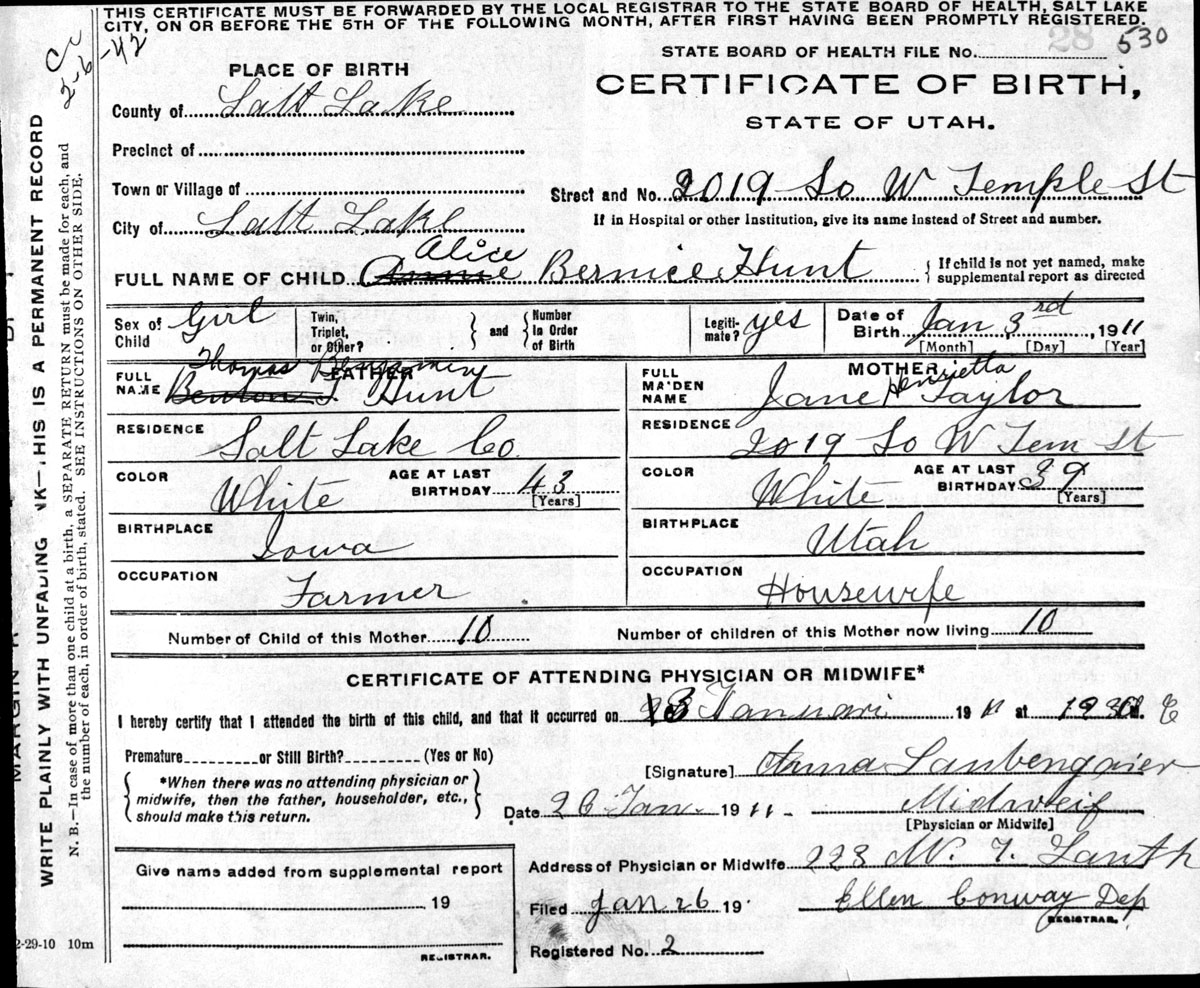 THIS CERTIFICATE MUST BE FORWARDED BY THE LOCAL REGISTRAR TO THE STATE BOARD OF HEALTH, SALT LAKE
CITY, ON OR BEFORE THE 5TH OF THE FOLLOWING MONTH, AFTER FIRST HAVING BEEN PROMPTLY REGISTERED.
2-6-42
28 530
STATE BOARD OF HEALTH FILE No.
PLACE OF BIRTH
CERTIFICATE OF BIRTH,
STATE OF UTAH.
County of Salt Lake
Precinct of
Town or Village of
Street and No. 2019 So W Temple St
City of Salt Lake
If in Hospital or other Institution, give its name instead of Street and number.
Alice
FULL NAME OF CHILD Annie Bernice Hunt
{ If child is not yet named, make
supplemental report as directed
Sex of Child Girl
Twin, Triplet, or Other? } and { Number In Order of Birth
Legiti-mate? yes
Date of Birth Jan 3rd 1911
[Month] [Day] [Year]
FATHER
Thomas Benjamin
FULL NAME Benton J. Hunt
MOTHER
Henrietta
FULL MAIDEN NAME Jane H Taylor
RESIDENCE Salt Lake Co.
RESIDENCE 2019 So W Tem St
COLOR White AGE AT LAST BIRTHDAY 43 [Years]
COLOR White AGE AT LAST BIRTHDAY 39 [Years]
BIRTHPLACE Iowa
BIRTHPLACE Utah
OCCUPATION Farmer
OCCUPATION Housewife
Number of Child of this Mother 10 Number of children of this Mother now living 10
CERTIFICATE OF ATTENDING PHYSICIAN OR MIDWIFE*
I hereby certify that I attended the birth of this child, and that it occurred on 3 Januari 1911 at
Premature or Still Birth? (Yes or No)
{ *When there was no attending physician or
midwife, then the father, householder, etc.,
should make this return. }
[Signature] Anna Laubengaier
Date 26 Jan. 1911 Midweif
[Physician or Midwife]
Give name added from supplemental report
19
REGISTRAR.
Address of Physician or Midwife 228 W. 7.
Filed Jan 26 19 Ellen Conway Dep
REGISTRAR.
Registered No. 2
2-29-10 10m
WRITE PLAINLY WITH UNFADING INK—THIS IS A PERMANENT RECORD
N. B.—In case of more than one child at a birth, a SEPARATE RETURN must be made for each, and
the number of each, in order of birth, stated. SEE INSTRUCTIONS ON OTHER SIDE.